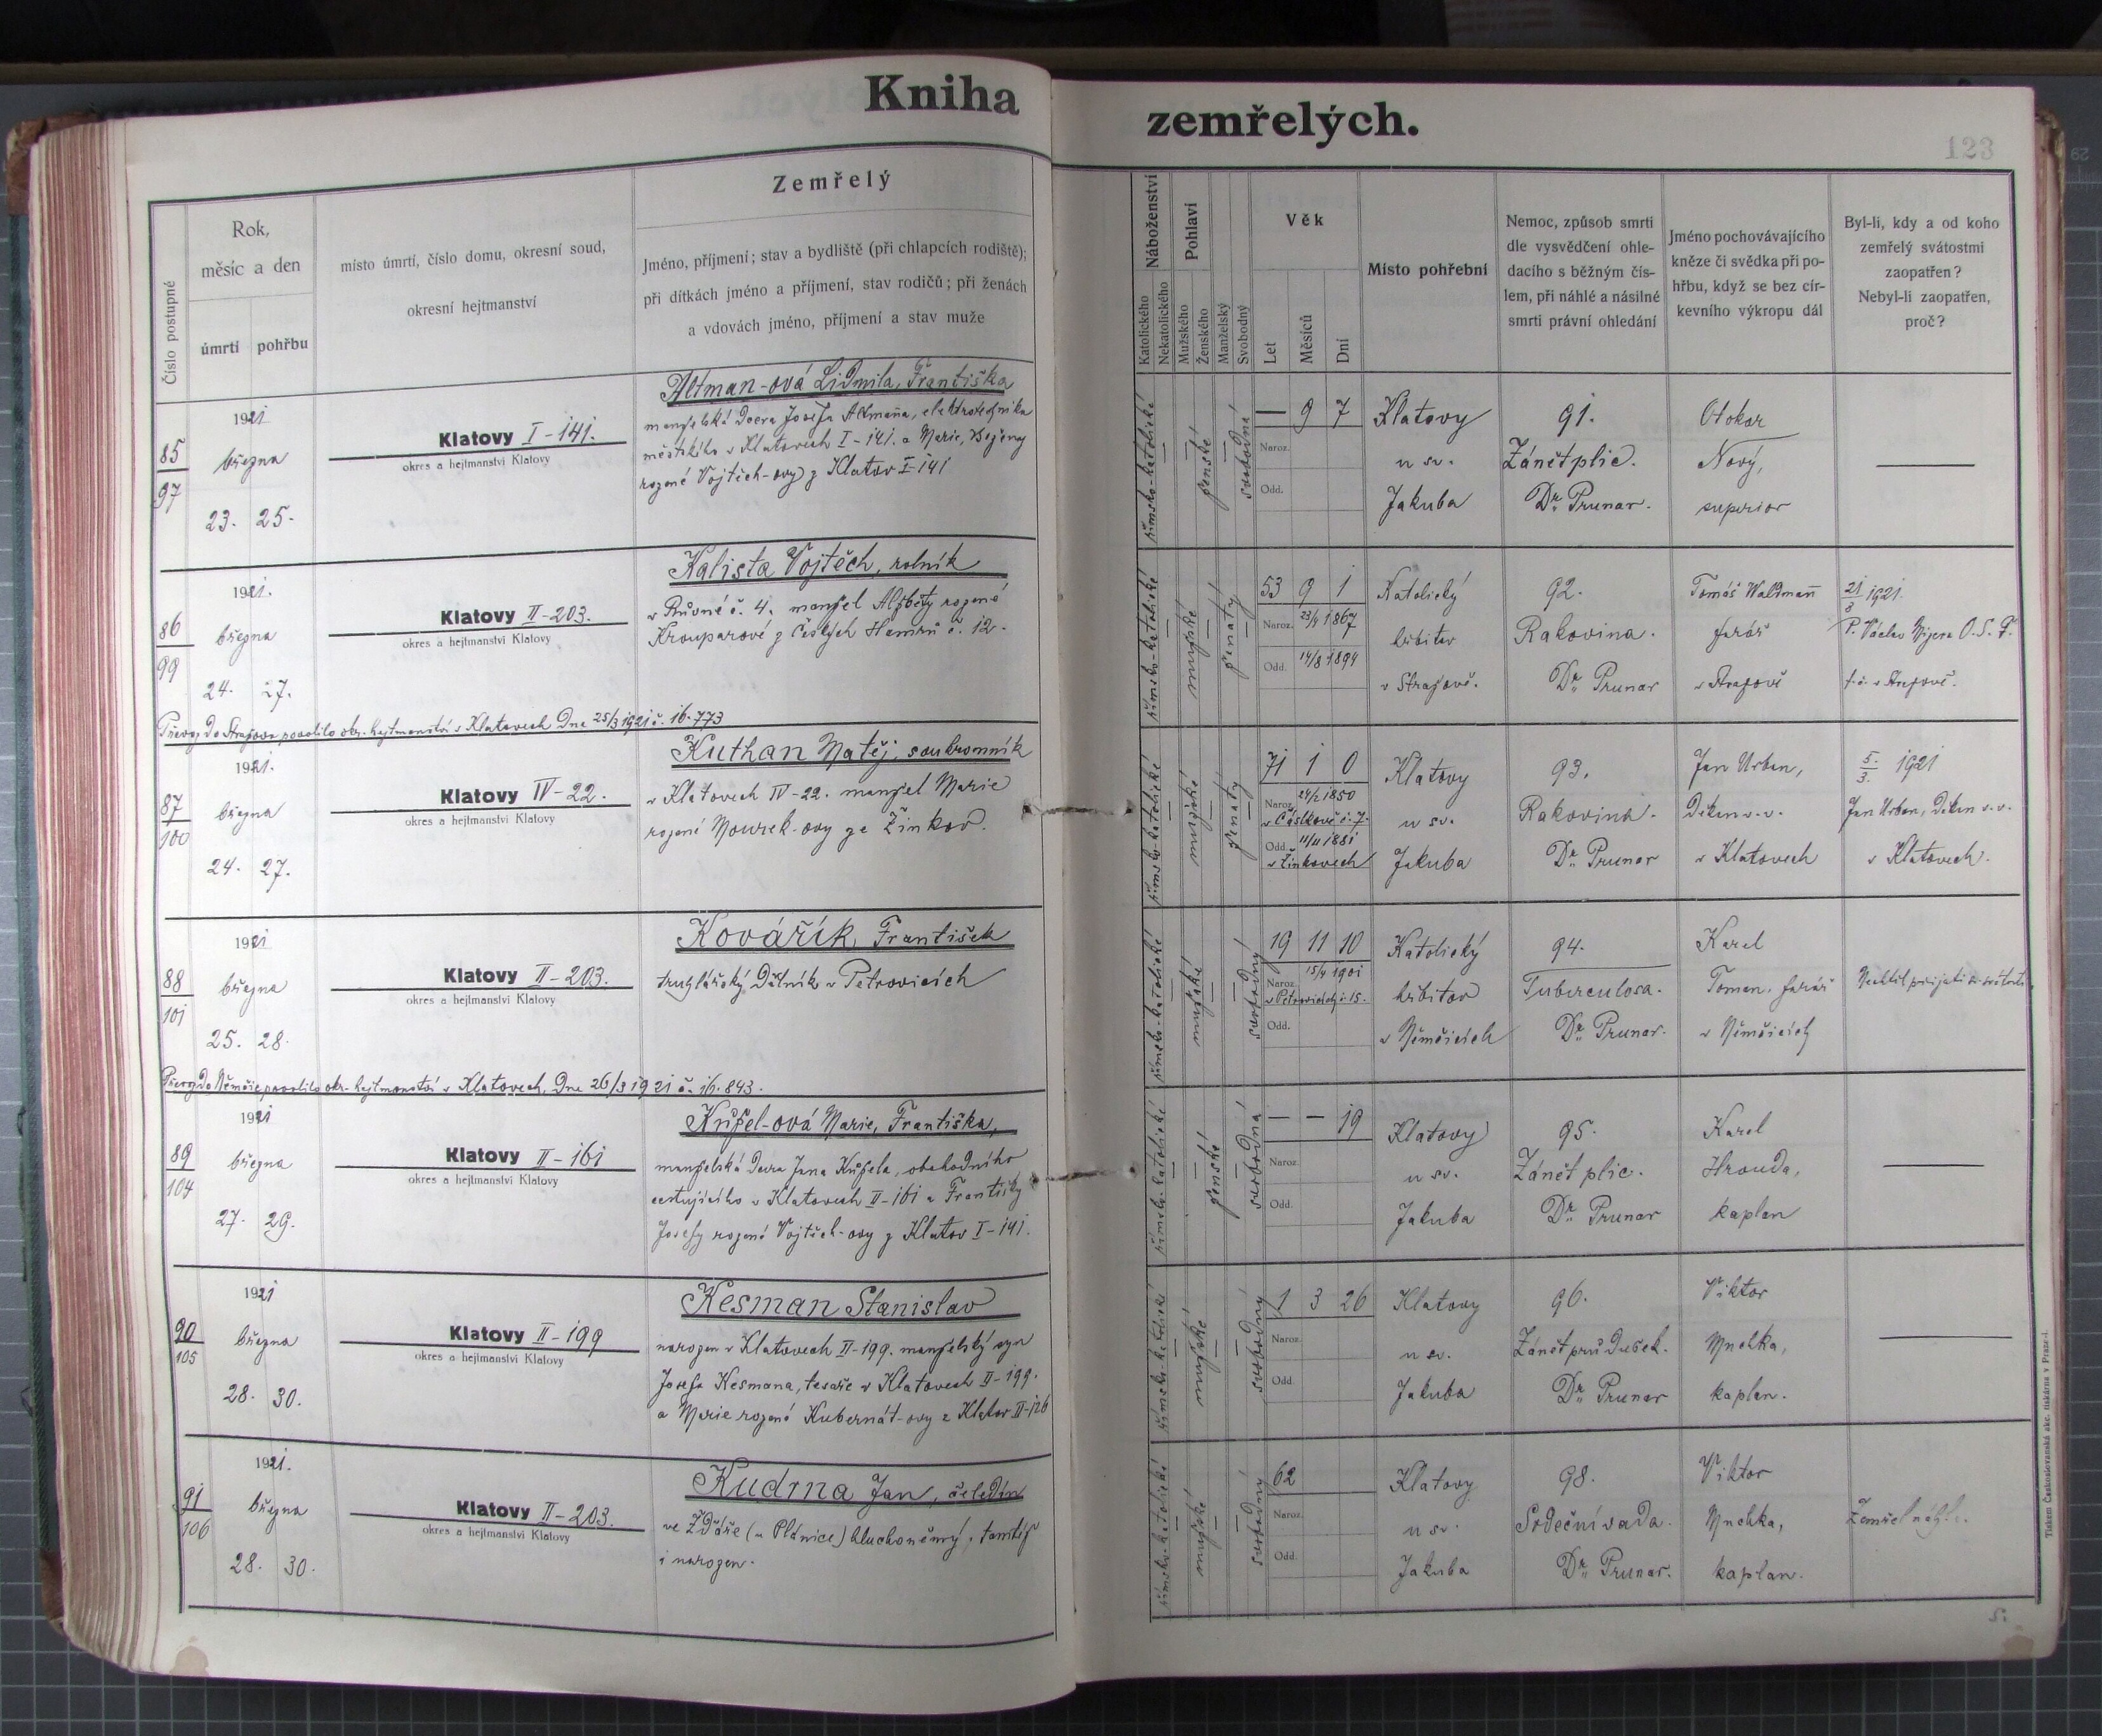 Kniha
zemřelých.
123
Číslo postupné
Rok,
měsíc a den
úmrtí
pohřbu
místo úmrtí, číslo domu, okresní soud,
okresní hejtmanství
Zemřelý
Jméno, příjmení; stav a bydliště (při chlapcích rodiště);
při dítkách jméno a příjmení, stav rodičů; při ženách
a vdovách jméno, příjmení a stav muže
Náboženství
Katolického
Nekatolického
Pohlaví
Mužského
Ženského
Manželský
Svobodný
Věk
Let
Měsíců
Dní
Místo pohřební
Nemoc, způsob smrti
dle vysvědčení ohle-
dacího s běžným čís-
lem, při náhlé a násilné
smrti právní ohledání
Jméno pochovávajícího
kněze či svědka při po-
hřbu, když se bez cír-
kevního výkropu dál
Byl-li, kdy a od koho
zemřelý svátostmi
zaopatřen?
Nebyl-li zaopatřen,
proč?
85
97
1921
března
23. 25.
Klatovy I-141.
okres a hejtmanství Klatovy
Altman-ová Lidmila, Františka
manželská dcera Josefa Altmana, elektrotechnika
městského v Klatovech I-141. a Marie, Boženy
rozené Vojtěch-ovy z Klatov I-141
římsko-katolické
ženské
svobodná
— 9 7
Naroz.
Odd.
Klatovy
u sv.
Jakuba
91.
Zánět plic.
Dr. Prunar.
Otokar
Nový,
superior
86
99
1921.
března
24. 27.
Klatovy II-203.
okres a hejtmanství Klatovy
Kalista Vojtěch, rolník
v č. 4. manžel Alžběty rozené
Krouparové z Českých Hamrů č. 12.
římsko-katolické
mužské
ženatý
53 9 1
Naroz. 23/4 1867
Odd. 14/8 1894
Katolický
hřbitov
v Strážově.
92.
Rakovina.
Dr. Prunar
Tomáš Waldmann
farář
v Strážově
21/3 1921.
P. Václav O.S.F.
v Strážově.
Převoz do Strážova povolilo okr. hejtmanství v Klatovech dne 25/3 1921 č. 16.773
87
100
1921.
března
24. 27.
Klatovy IV-22.
okres a hejtmanství Klatovy
Kuthan Matěj, soukromník
v Klatovech IV-22. manžel Marie
rozené Mourek-ovy ze Žinkov.
římsko-katolické
mužské
ženatý
71 1 0
Naroz. 24/2 1850
v Částkově č. 7.
Odd. 11/11 1881
v Žinkovech
Klatovy
u sv.
Jakuba
93.
Rakovina.
Dr. Prunar
Jan Urban,
Děkan v.v.
v Klatovech
5./3. 1921
Jan Urban, Děkan v.v.
v Klatovech.
88
101
1921
března
25. 28.
Klatovy II-203.
okres a hejtmanství Klatovy
Kovářík, František
truhlářský dělník v Petrovicích
římsko-katolické
mužské
svobodný
19 11 10
Naroz. 15/4 1901
v Petrovicích č. 15.
Odd.
Katolický
hřbitov
v Němčicích
94.
Tuberculosa.
Dr. Prunar.
Karel
Toman, farář
v Němčicích
Nechtěl přijati
Převoz do Němčic povolilo okr. hejtmanství v Klatovech, dne 26/3 1921 č. 16.843.
89
104
1921
března
27. 29.
Klatovy II-161
okres a hejtmanství Klatovy
Kůžel-ová Marie, Františka,
manželská dcera Jana Kůžela, obchodního
cestujícího v Klatovech II-161 a Františky
Josefy rozené Vojtěch-ovy z Klatov I-141.
římsko-katolické
ženské
svobodná
— — 19
Naroz.
Odd.
Klatovy
u sv.
Jakuba
95.
Zánět plic.
Dr. Prunar
Karel
Hrouda,
kaplan
90
105
1921
března
28. 30.
Klatovy II-199
okres a hejtmanství Klatovy
Kesman Stanislav
narozen v Klatovech II-199. manželský syn
Josefa Kesmana, tesaře v Klatovech II-199.
a Marie rozené Kubernát-ovy z Klatov II-126
římsko-katolické
mužské
svobodný
1 3 26
Naroz.
Odd.
Klatovy
u sv.
Jakuba
96.
Zánět průdušek.
Dr. Prunar
Viktor
Mnchka,
kaplan.
91
106
1921.
března
28. 30.
Klatovy II-203.
okres a hejtmanství Klatovy
Kudrna Jan, čeledín
ve Ždáře (u Plánice) hluchoněmý, tamtéž
i narozen.
římsko-katolické
mužské
svobodný
62
Naroz.
Odd.
Klatovy
u sv.
Jakuba
98.
Srdeční vada.
Dr. Prunar.
Viktor
Mnchka,
kaplan.
Zemřel náhle.
Tiskem Československá akc. tiskárna v Praze-I.